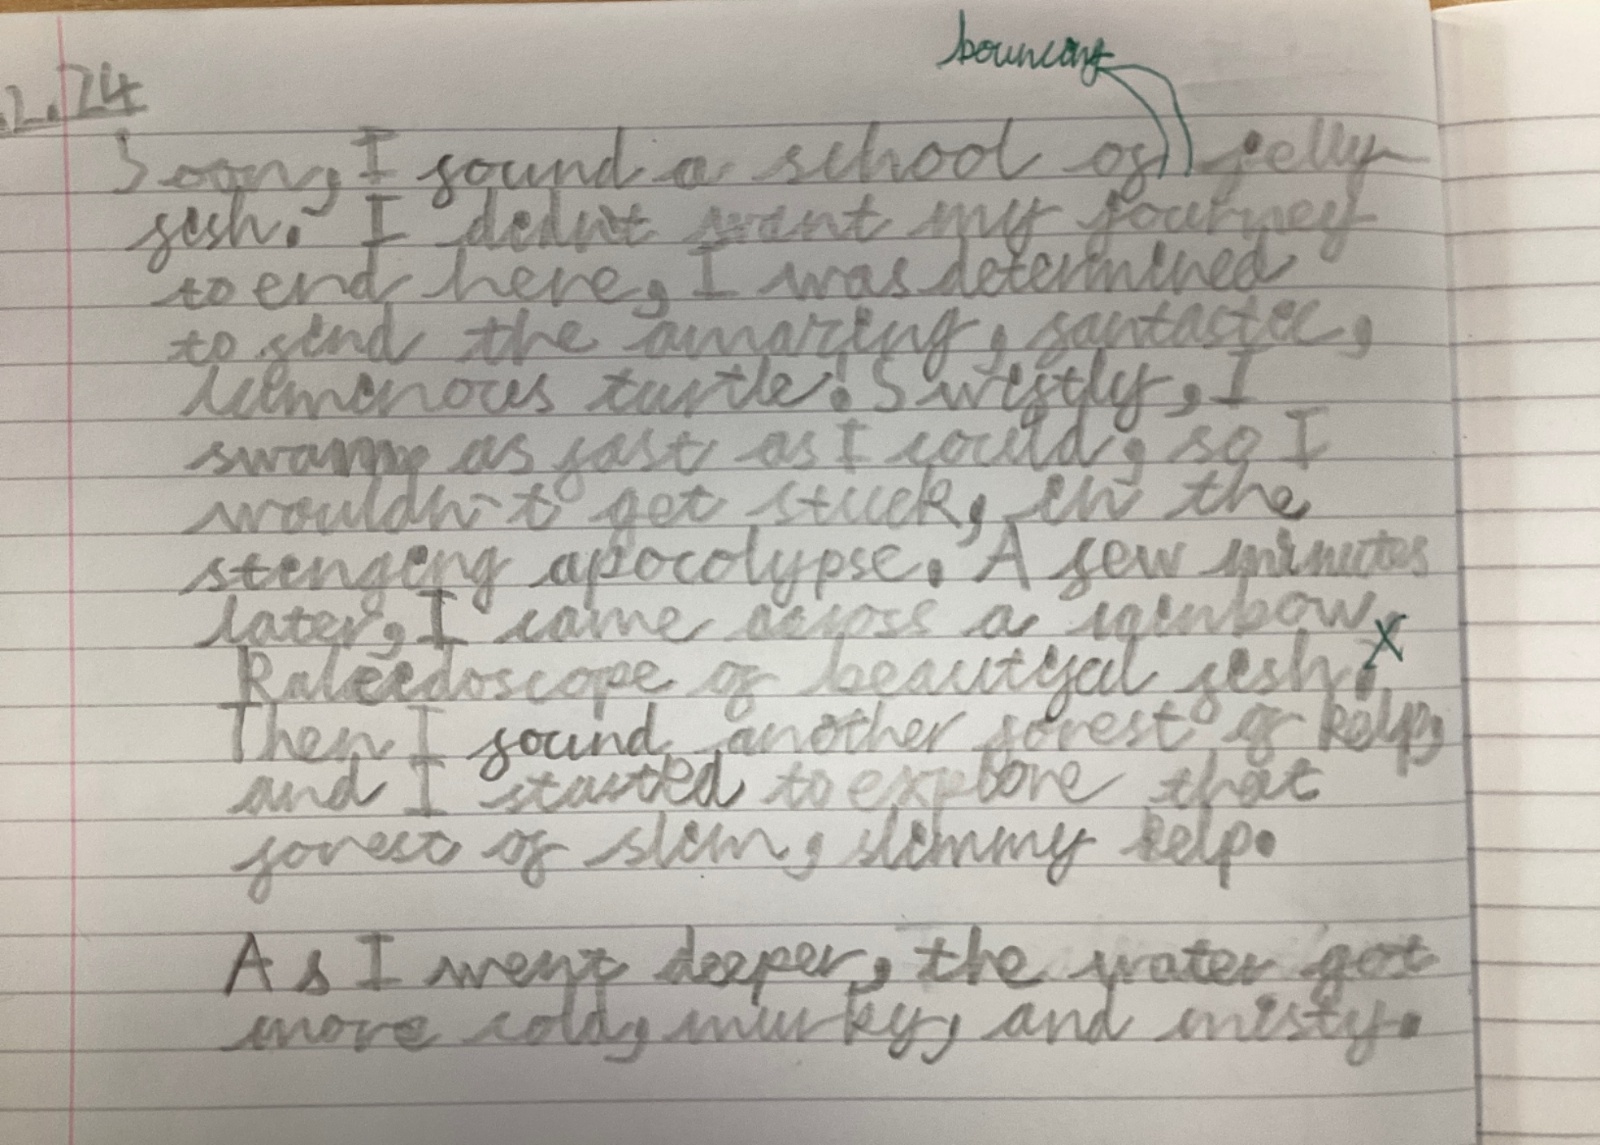 bouncing
.2.24
Soon, I found a school of jelly
fish. I didn't want my journey
to end here, I was determined
to find the amazing, fantastic,
luminous turtle. Swiftly, I
swam as fast as I could, so I
wouldn't get stuck, in the
stinging apocolypse. A few minutes
later, I came across a rainbow
Kaleidoscope of beautyful fish.
x
Then I found another forest of kelp,
and I started to explore that
forest of slim, slimmy kelp.
As I went deeper, the water got
more cold, murky, and misty.